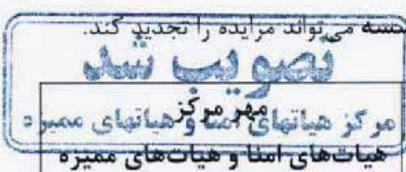 سسه می‌تواند مزایده را تجدید کند.
تصویب شد
مهر مرکز
مرکز هیاتهای امنا و هیاتهای ممیزه
هیات‌های امنا و هیات‌های ممیزه